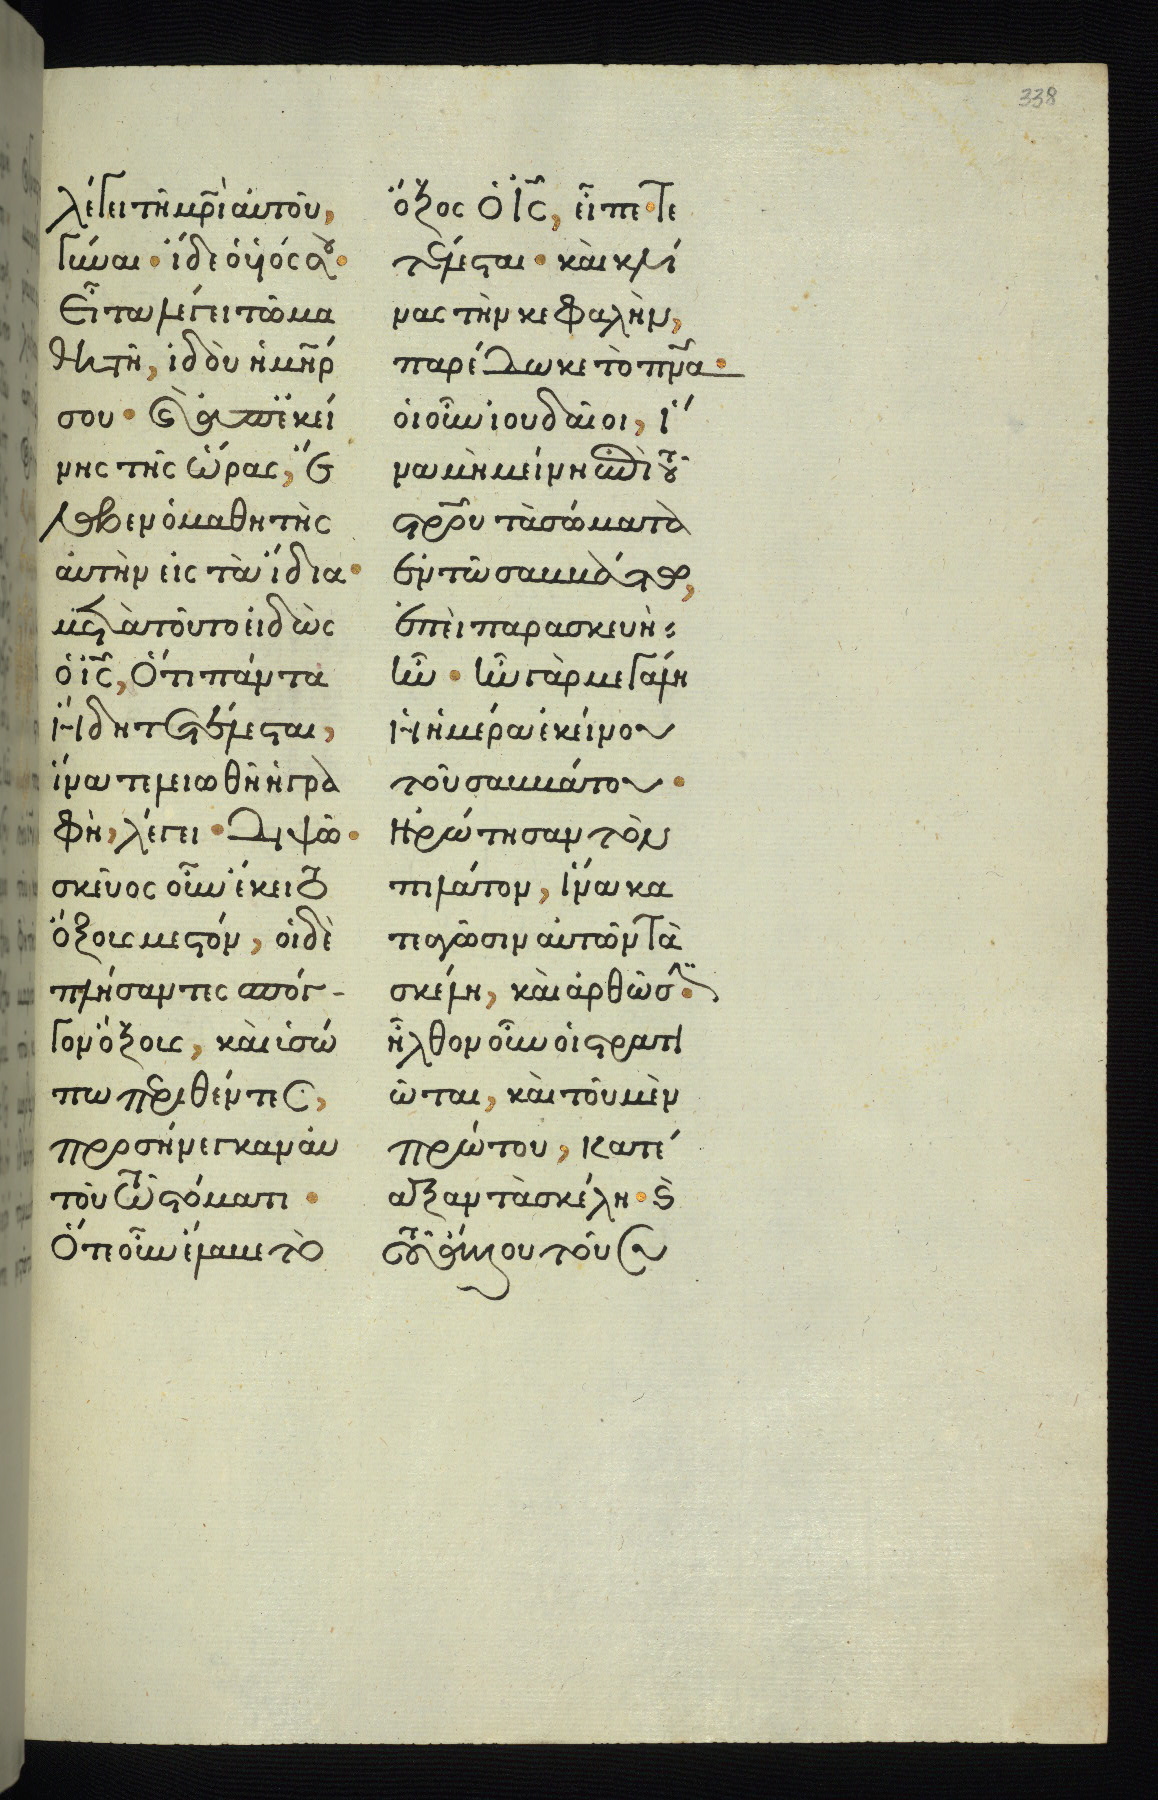 338
λέγει τῆ μρ̅ὶ ἀυτοῦ,
γύναι · ίδε ὁ υἱός σου·
Εἶτα λέγει τῶ μα
θητῆ, ἰδοὺ ἡ μη̅ρ
σου · καὶ ἀπ ἐκεί
νης τῆς ὥρας, ἔ
λαβεν ὁ μαθητὴς
ἀυτὴν εἰς τὰ ἴδια·
μετὰ τοῦτο εἰδὼς
ὁ ι̅ς̅, Ὅτι πάντα
Ἤδη τετέλεσται,
ἵνα τελειωθῆ ἡ γρα
φὴ, λέγει · Διψῶ·
σκεῦος οὖν ἔκειτο
ὄξους μεστόν, οἱ δὲ
πλήσαντες σπόγ-
γον ὄξους, καὶ ὑσώ
πω περιθέντες,
προσήνεγκαν ἀυ
τοῦ τῶ στόματι ·
Ὅτε οὖν ἔλαβε τὸ
ὄξος Ὁ ι̅ς̅, εἶπε· Τε
τέλεσται · καὶ κλί
νας τὴν κεφαλὴν,
παρέδωκε τὸ πν̅α·
οἱ οὖν ιουδαῖοι, ἵ
να μὴ μείνη ἐπὶ τοῦ
στρ̅ου τὰ σώματα
ἐν τῶ σαββάτω,
ἐπεὶ παρασκευὴ :
ἦν · ἦν γὰρ μεγάλη
Ἡ ἡμέρα ἐκείνου
τοῦ σαββάτου ·
Ἠρώτησαν τὸν
πιλάτον, ἵνα κα
τεαγῶσιν ἀυτῶν τὰ
σκέλη, καὶ ἀρθῶσιν·
ἦλθον οὖν οἱ στρατι
ῶται, καὶ τοῦ μὲν
πρώτου, κατέ
αξαν τὰ σκέλη · καὶ
τοῦ ἄλλου τοῦ συ